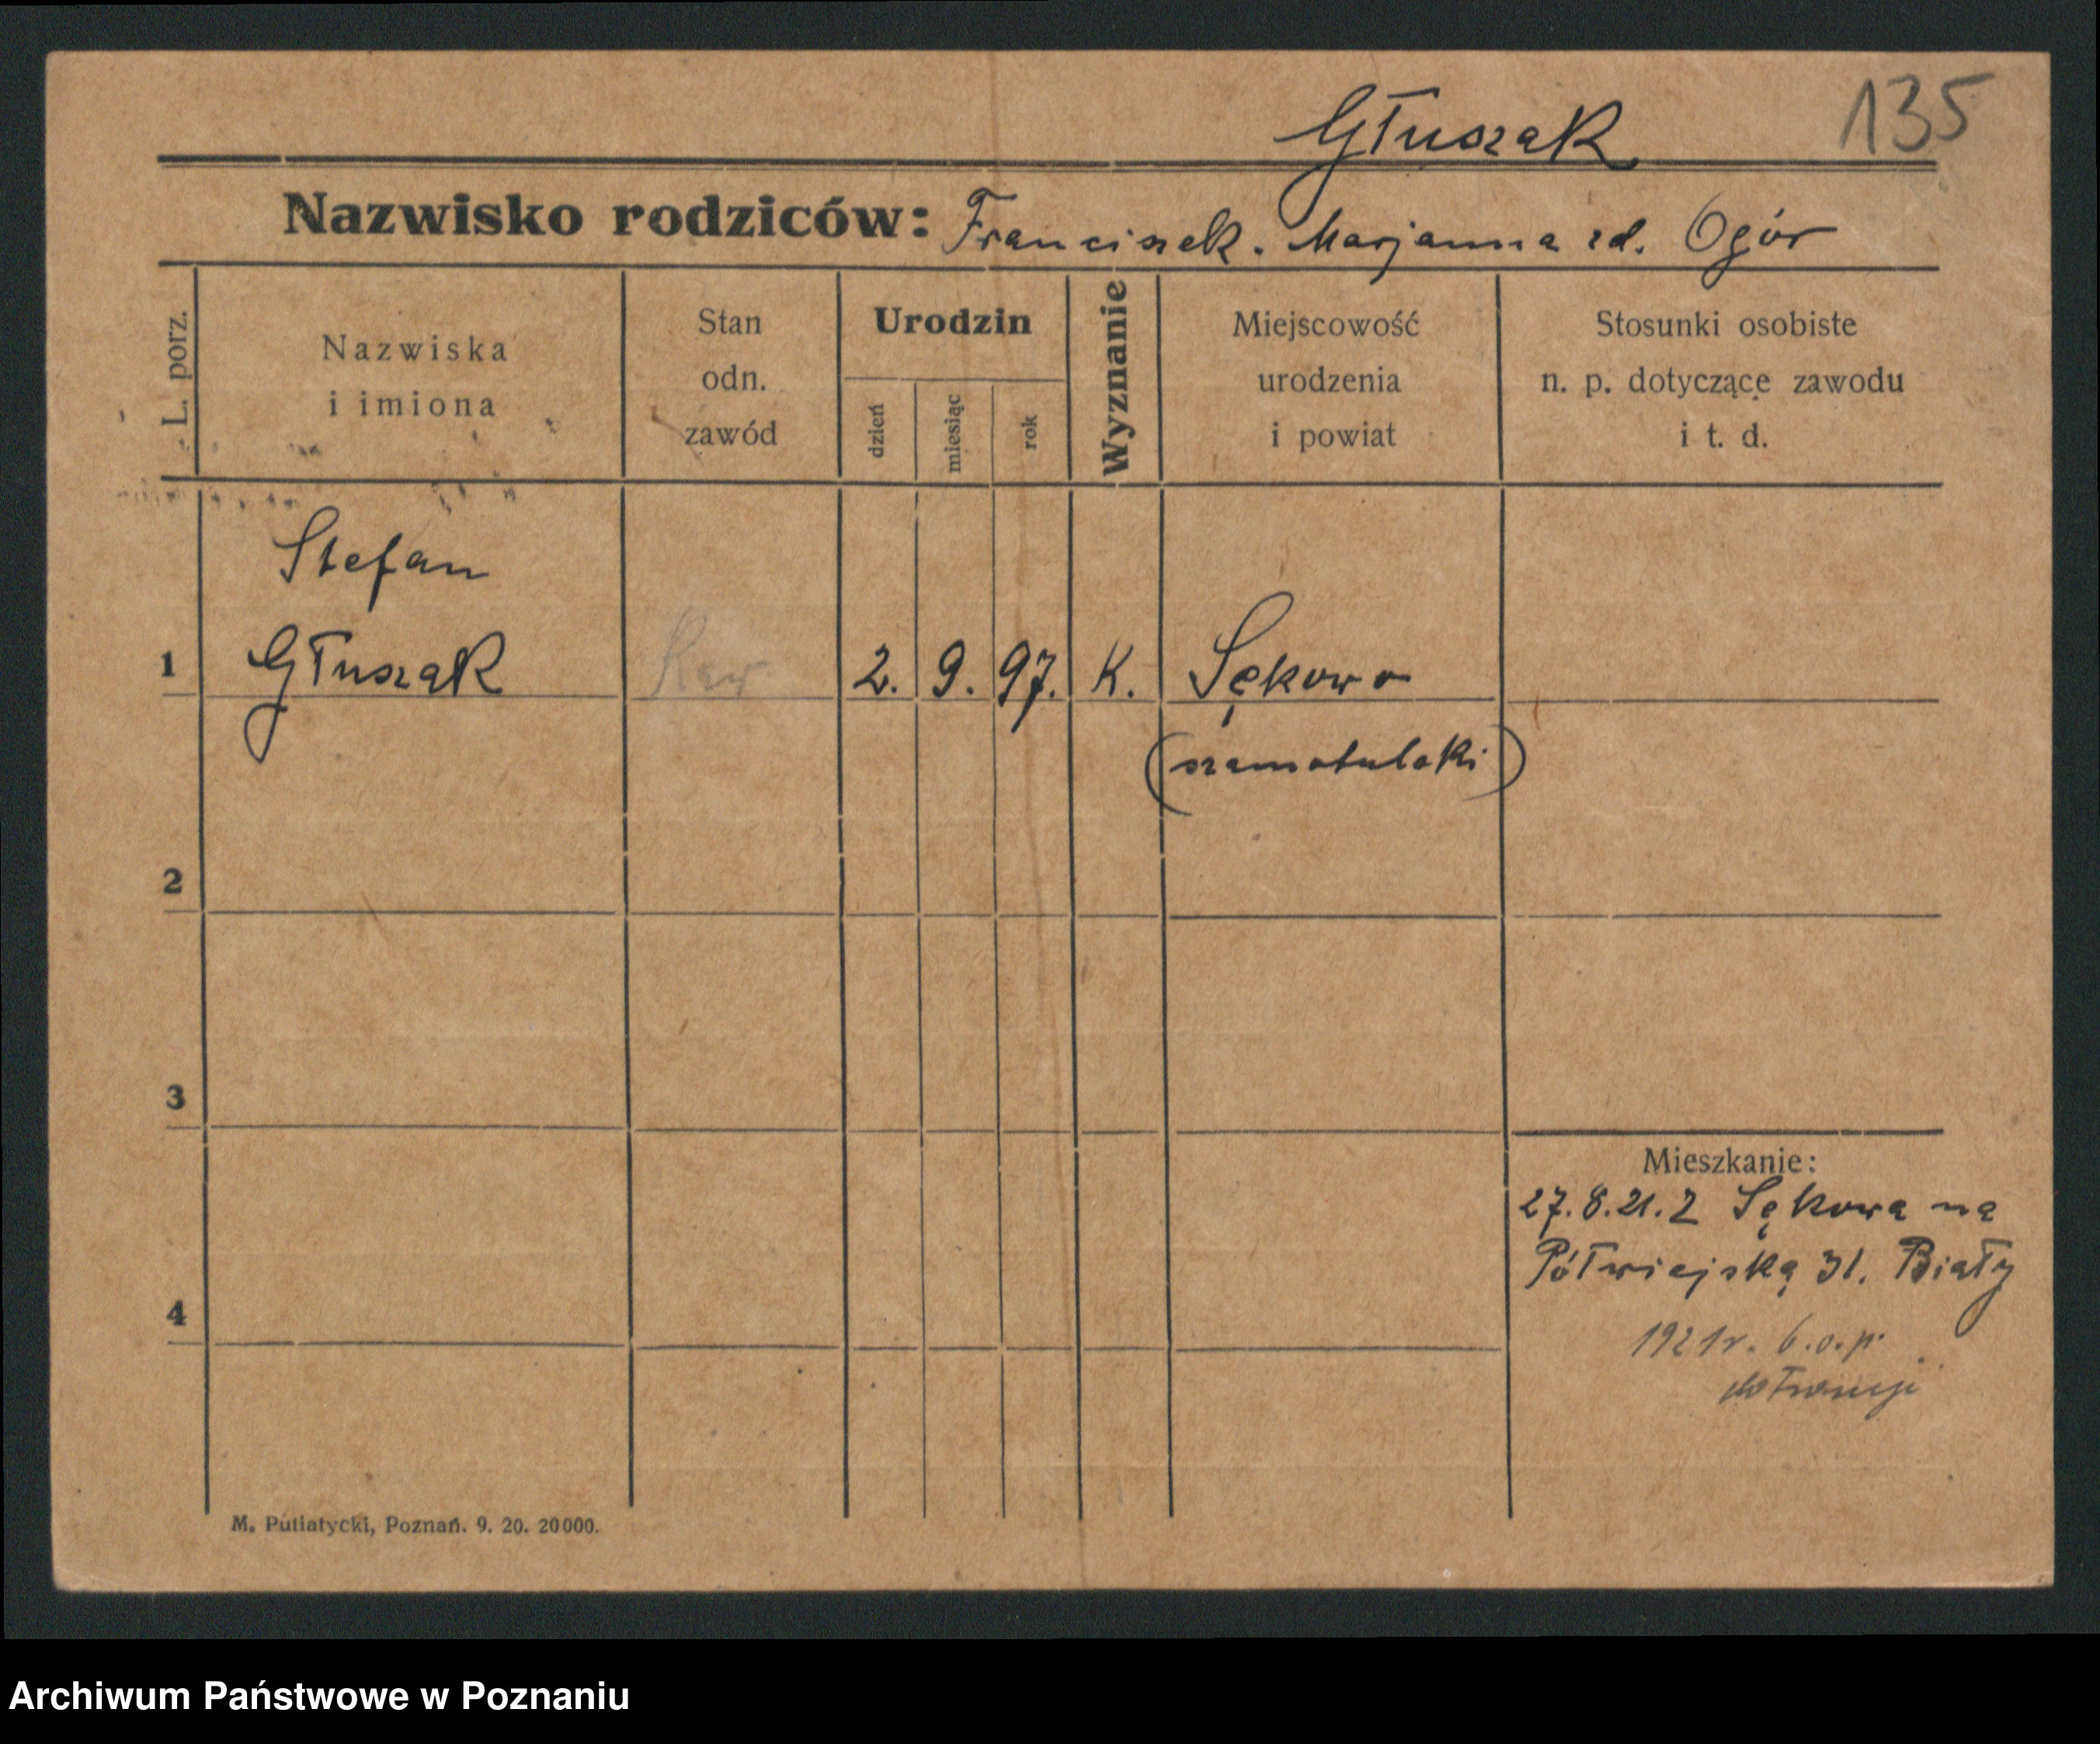 Głuszak 135
Nazwisko rodziców: Franciszek. Marjanna zd. Ogór
L. porz.
Nazwiska
i imiona
Stan
odn.
zawód
Urodzin
dzień
miesiąc
rok
Wyznanie
Miejscowość
urodzenia
i powiat
Stosunki osobiste
n. p. dotyczące zawodu
i t. d.
Stefan
1 Głuszak Kaw 2. 9. 97. K. Sękowo
(szamotulski)
2
3
Mieszkanie:
27.8.21. Z Sękowa na
Półwiejską 31. Biały
4
1921r. b.o.p.
do Francji
M. Putiatycki, Poznań. 9. 20. 20000.
Archiwum Państwowe w Poznaniu